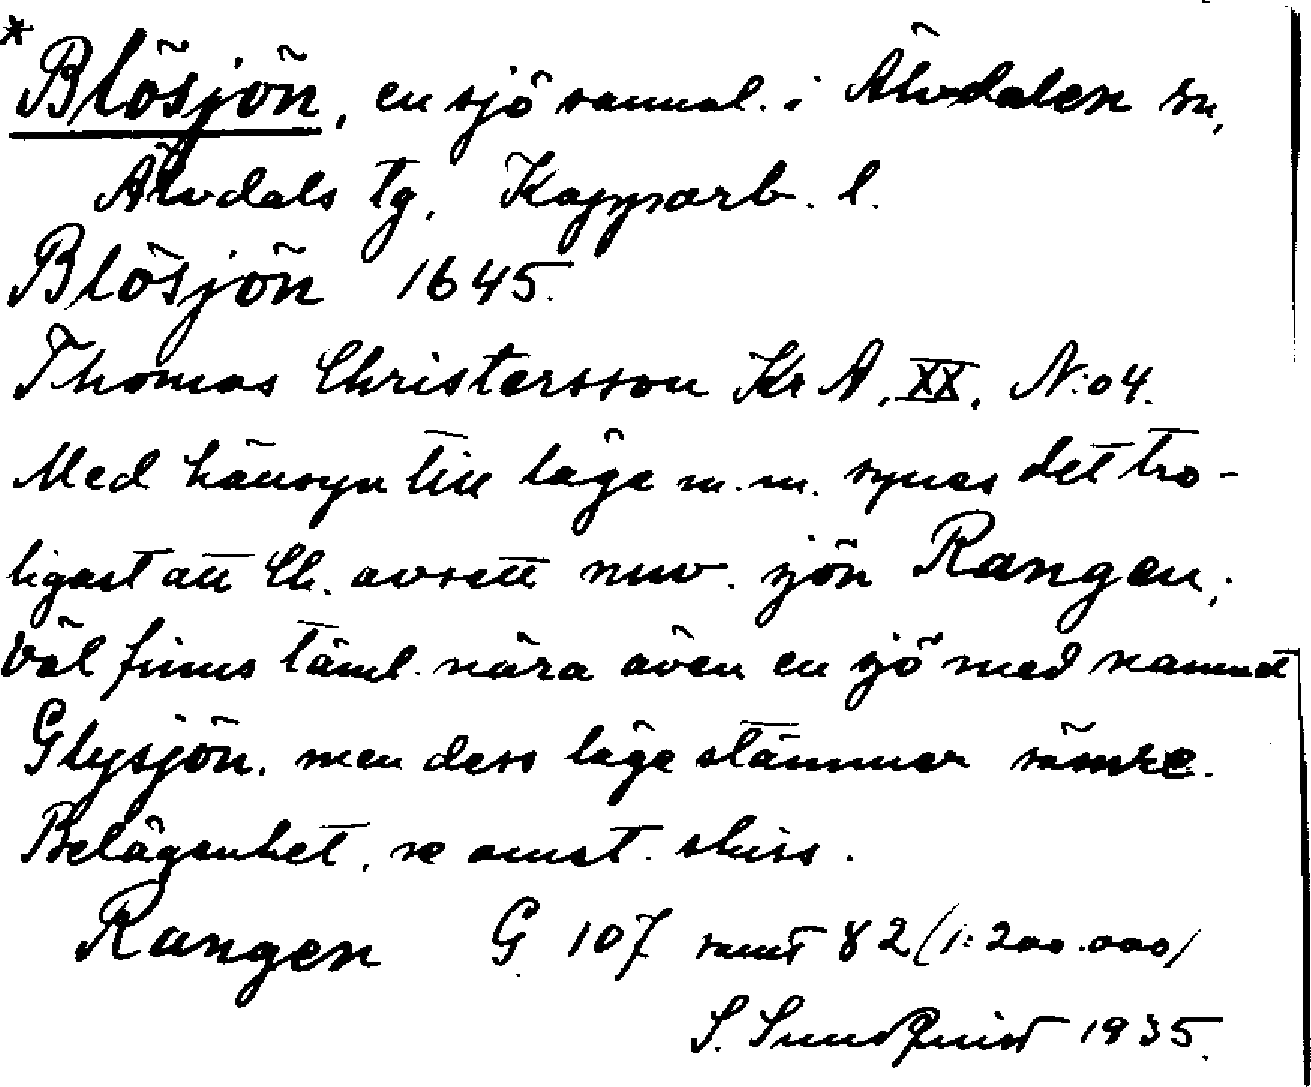 * Blösjön, en sjö samml. i Älvdalen sn,
Älvdals tg, Kopparb. l.
Blösjön 1645.
Thomas Christersson Kr A, XX, N:o 4.
Med hänsyn till läge m.m. synes det tro-
ligast att Ch. avsett nuv. sjön Rangen;
väl finns täml. nära även en sjö med namnet
Glysjön, men dess läge stämmer sämre.
Belägenhet, se omst. skiss.
Rangen G 107 samt 82 (1:200.000)
S. Sundquist 1935.